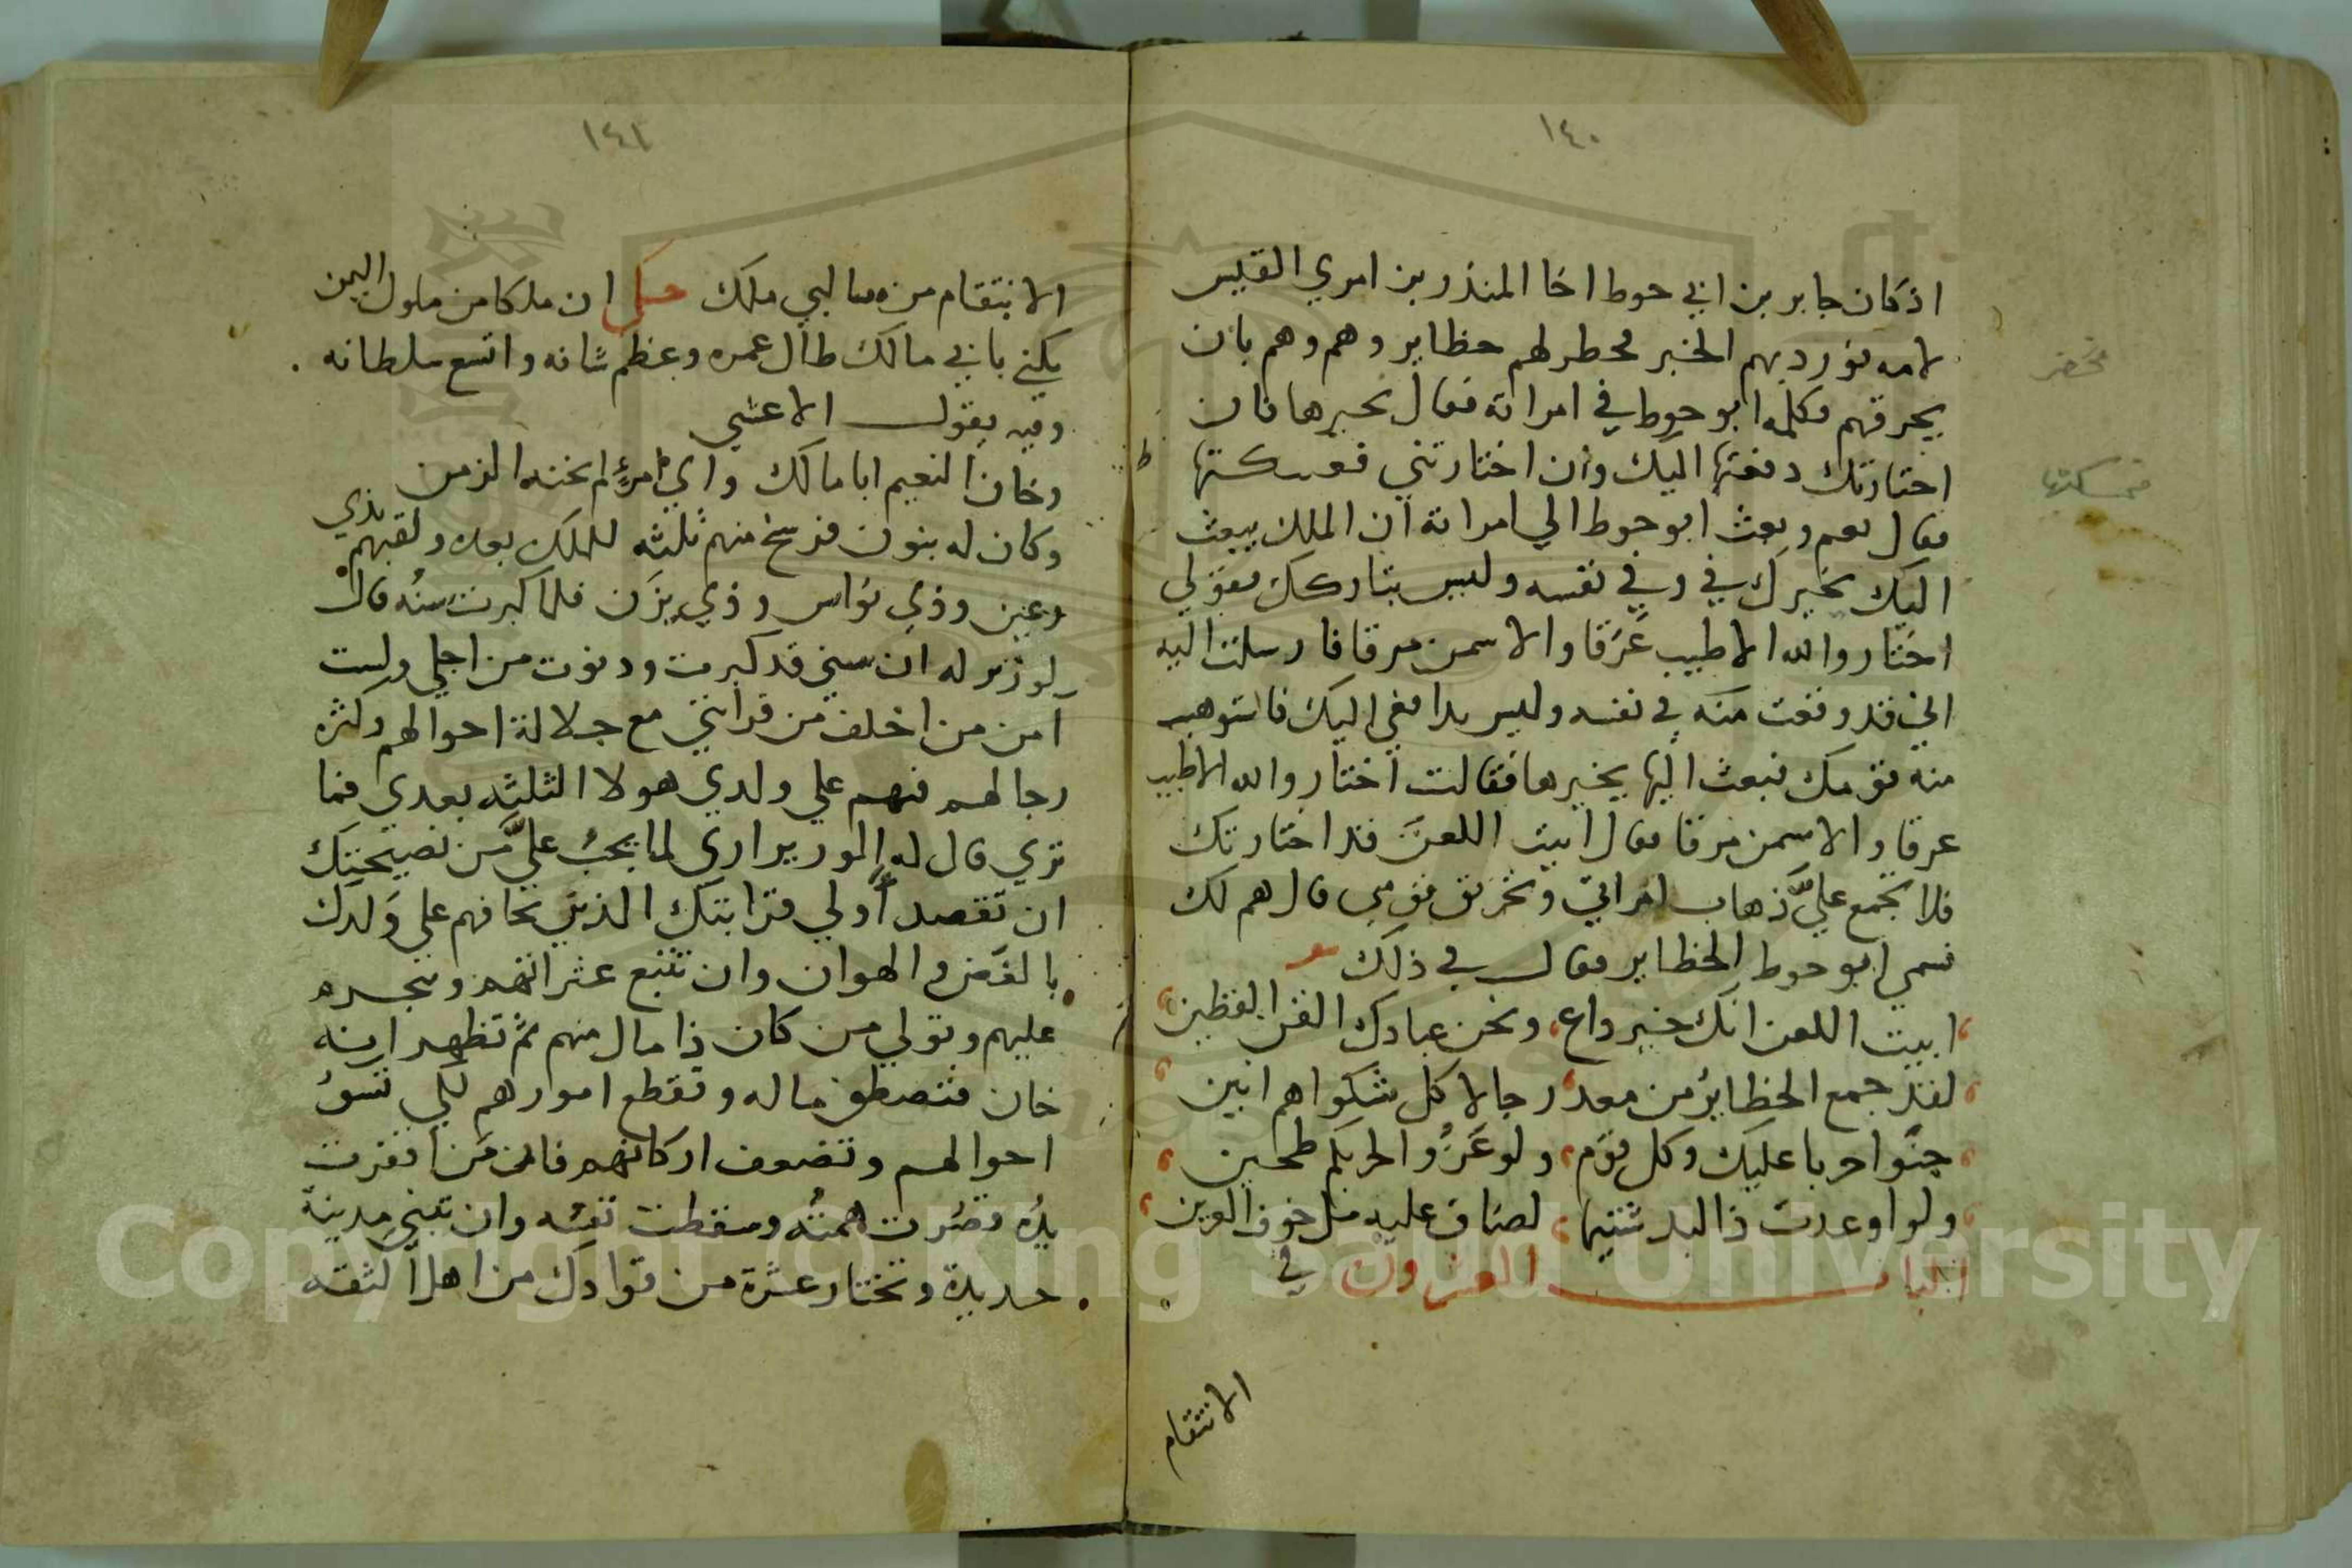 ١٤٠
اذ كان جابر بن ابي حوط اخا المنذر بن امري القيس
لامه فورد بهم الخبر فحطر لهم حظاير وهم وهم بان
يحرقهم فكلمه ابو حوط في امراته فقال نخيرها فان
اختارتك دفعتها اليك وان اختارتني فمسكتها
فقال نعم وبعث ابو حوط الي امراته ان الملك يبعث
اليك يخيرك في وفي نفسه وليس بتاركك فقولي
اختار والله الاطيب عَرَقا والاسمن مرقا فارسلت اليه
اني قد وقعت منه في نفسه وليس بدافعي اليك فاستوهب
منه قومك فبعث اليها يخيرها فقالت اختار والله الاطيب
عرقا والاسمن مرقا فقال ابيت اللعن قد اختارتك
فلا تجمع عليَّ ذهاب امراتي وتحريق قومي قال هم لك
فسمي ابو حوط الحظاير فقال في ذلك
ابيت اللعن انك خير داع ونحن عبادك القن القطين
لقد جمع الحظايرُ من معد رجالا كل شكواهم انين
جنَوا حربا عليك وكل قوم ولو عَزُّوا لحربكم طحين
ولو اوعدت ذا البد شنيها لضاق عليه من خوف العرين
الباب العشرون في
الانتقام
فحضر
فمسكتها
١٤١
الانتقام من سالبي ملك حكي ان ملكا من ملوك اليمن
يكني بابي مالك طال عمره وعظم شانه واتسع سلطانه
وفيه يقول الاعشي
وخان النعيم ابا مالك واي امرءٍ لم يخنه الزمن
وكان له بنون فرسخ منهم ثلثه للملك بعده ولقبهم بذي
رعين وذي نواس وذي يزن فلما كبرت سنُه قال
لوزير له ان سني قد كبرت ودنوت من اجلي ولست
آمن من اخلف من قرابتي مع جلالة احوالهم وكثره
رجالهم فيهم علي ولدي هولا الثلثه بعدي فما
تري قال له الوزير اري لما يجبُ عليَّ من نصيحتك
ان تقصد اُولي قرابتك الذين تخافهم علي وَلدك
بالغَمز والهوان وان تتبع عثراتهم وتجسره
عليهم وتولي من كان ذا مال منهم ثم تظهر انه
خان فتصطفي ماله وتقطع امورهم لكي تسوُ
احوالهم وتضعف اركانهم فان من افتقرت
يدُه قصُرت همتُه وسقطت نفسُه وان تبني مدينة
حديدة وتختار عشرة من قوادك من اهل الثقه